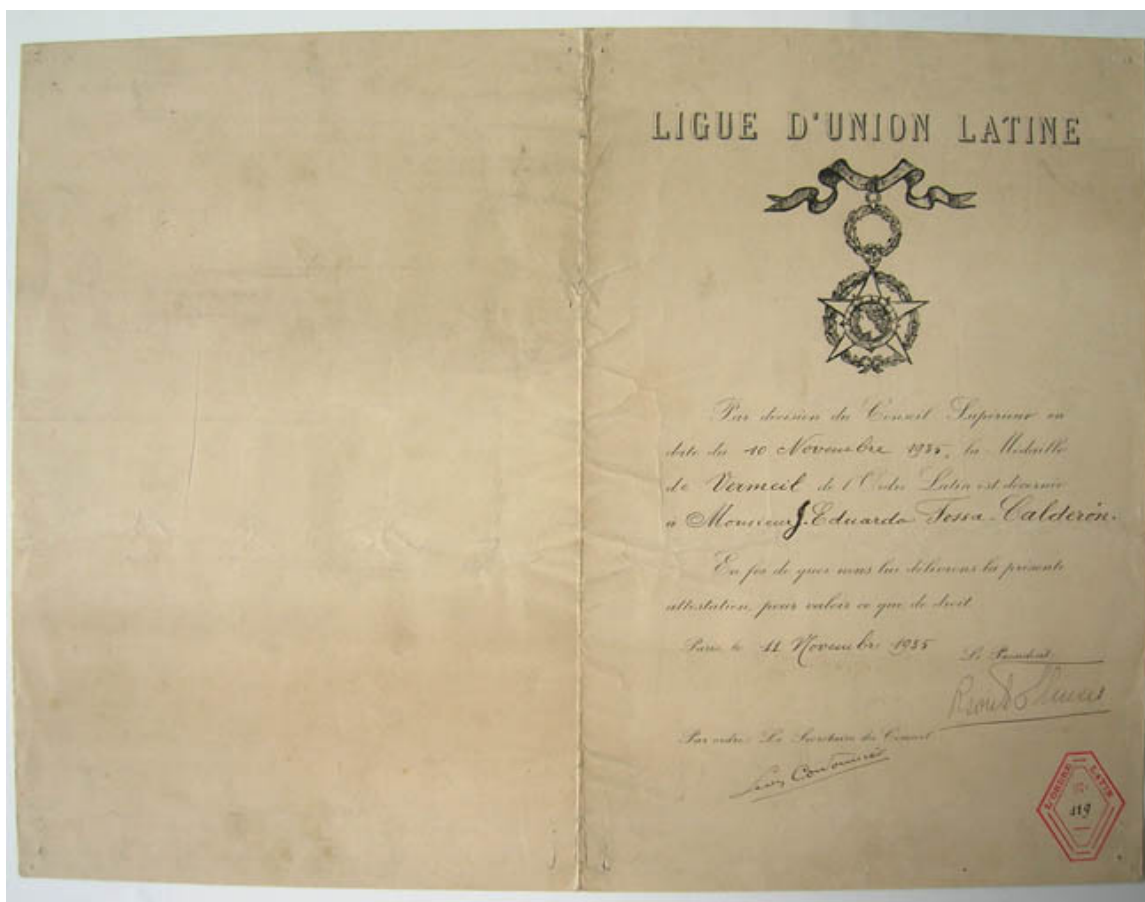 LIGUE D'UNION LATINE
Par décision du Conseil Supérieur en
date du 10 Novembre 1935, la Médaille
de Vermeil de l'Ordre Latin est décernée
à Monsieur J. Eduardo Fossa-Calderón.
En foi de quoi nous lui délivrons la présente
attestation, pour valoir ce que de droit
Paris, le 11 Novembre 1935
Le Président
Par ordre: Le Secrétaire du Conseil
L'ORDRE LATIN
N°
119